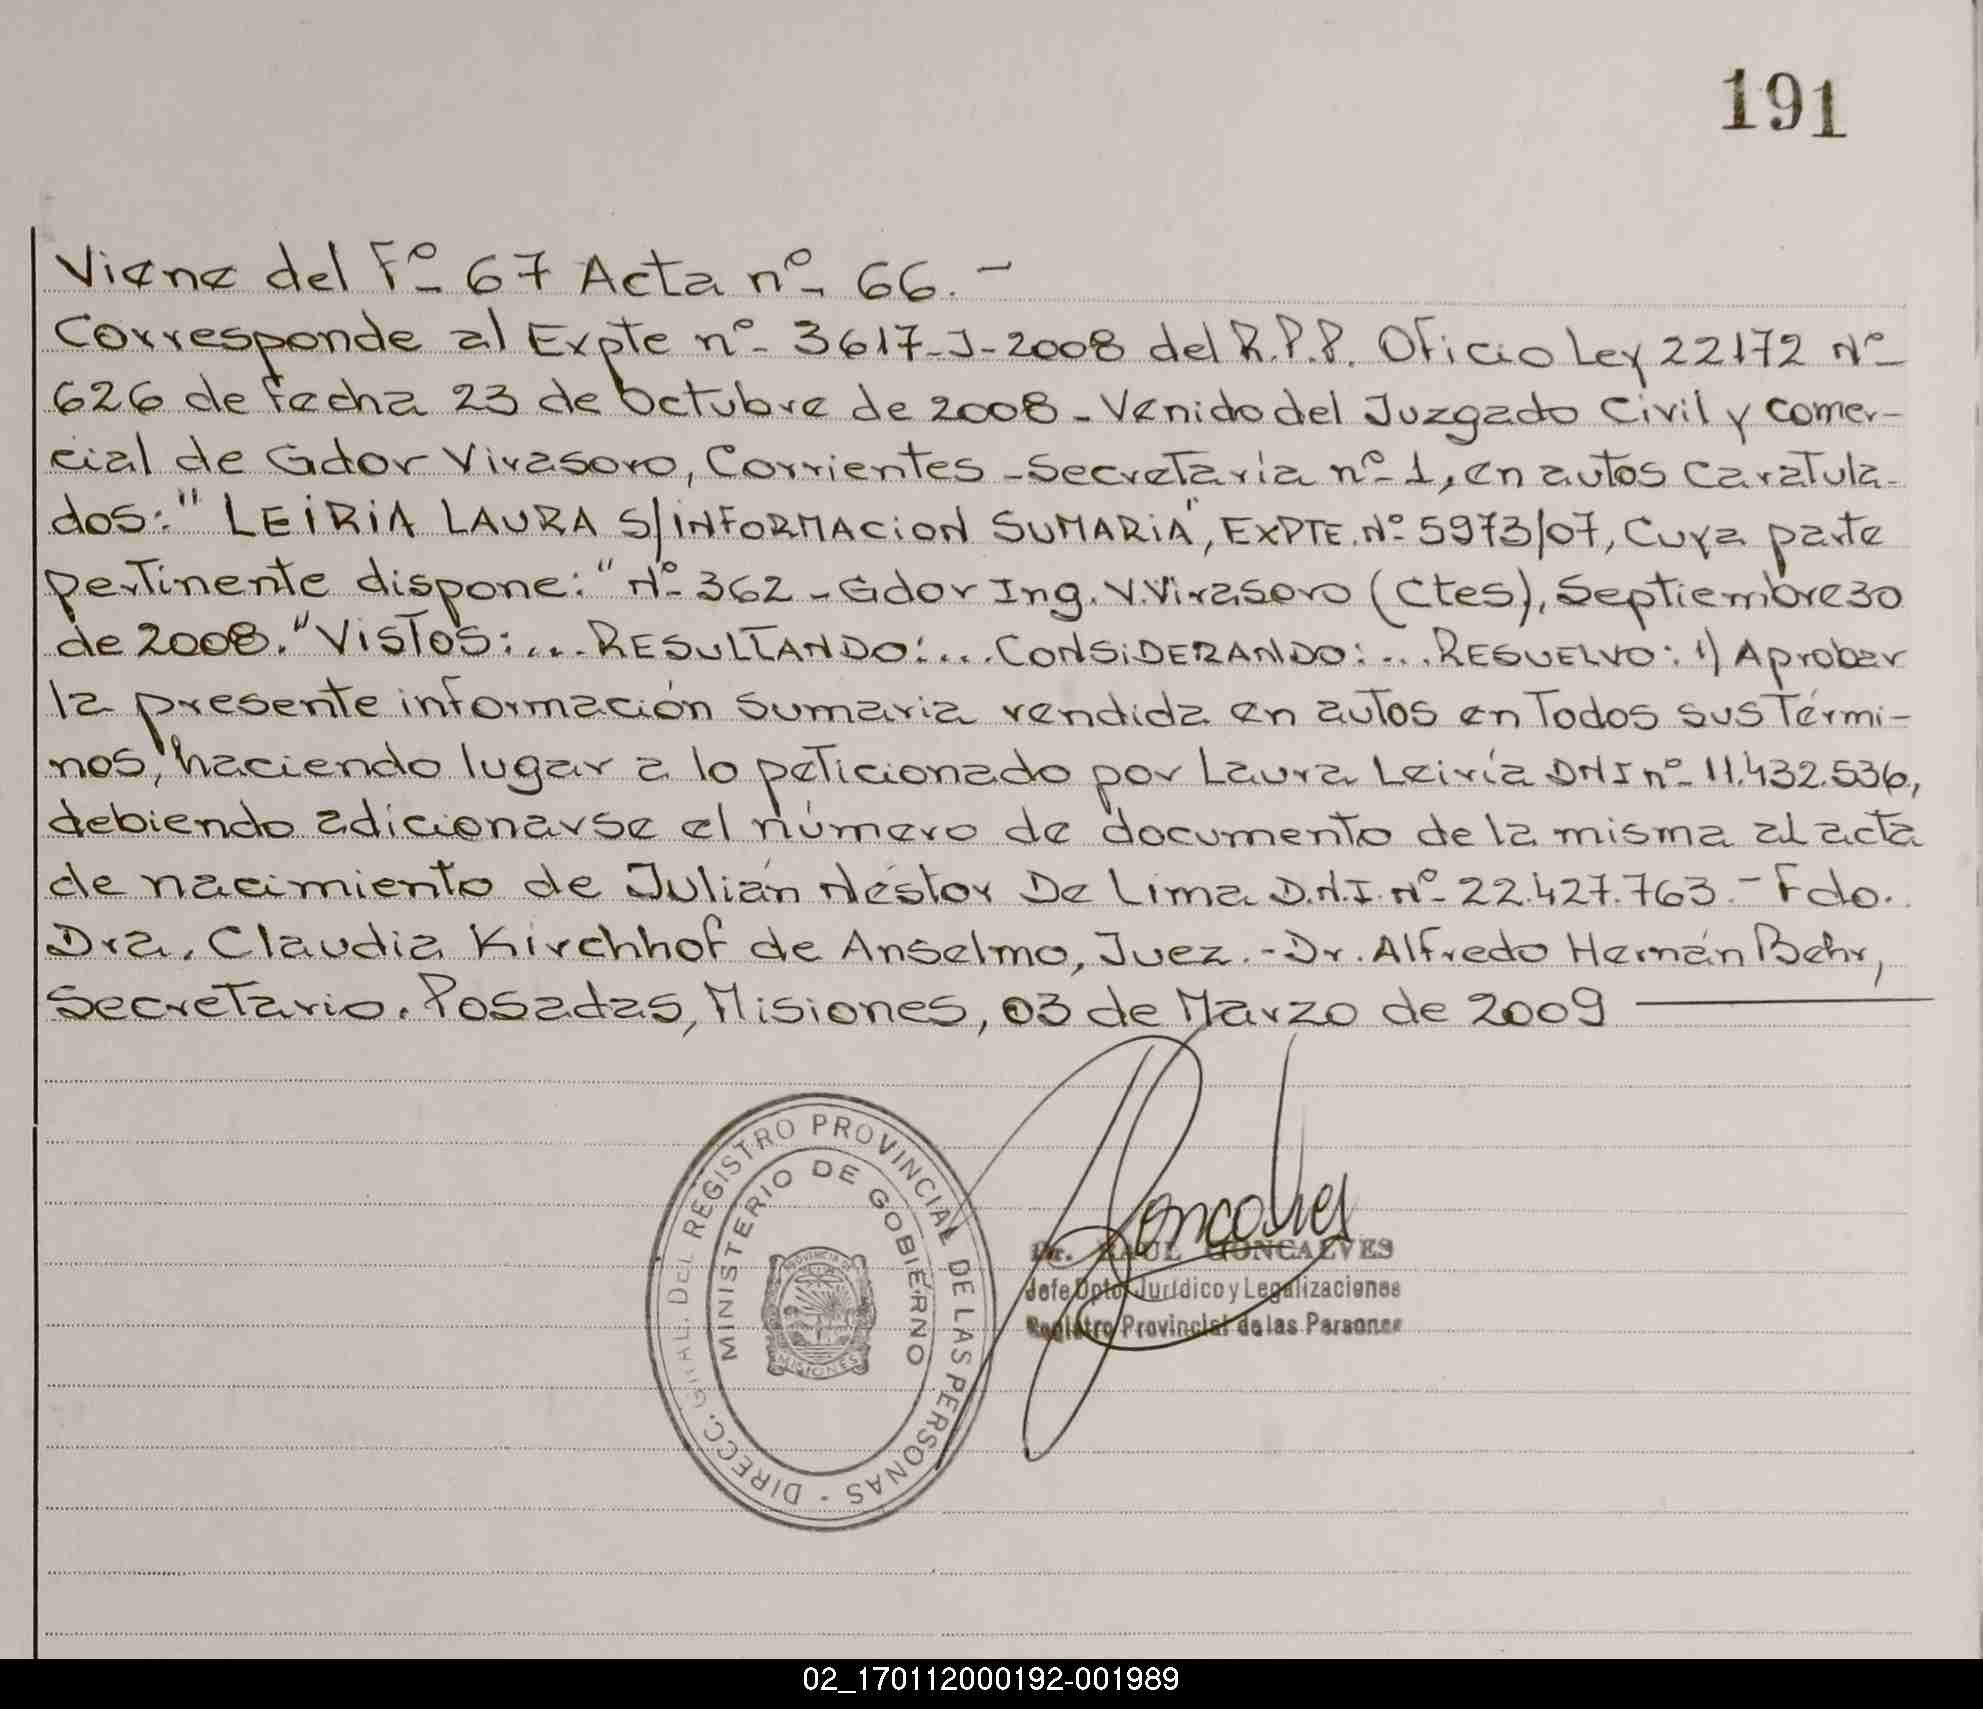 191
Viene del Fº 67 Acta nº 66.-
Corresponde al Expte nº 3617-J-2008 del R.P.P. Oficio Ley 22172 Nº
626 de fecha 23 de Octubre de 2008 - Venido del Juzgado Civil y comer-
cial de Gdor Virasoro, Corrientes - Secretaría nº 1, en autos caratula-
dos: "LEIRIA LAURA S/INFORMACION SUMARIA", EXPTE. Nº 5973/07, Cuya parte
pertinente dispone: "Nº 362 - Gdor Ing. V. Virasoro (Ctes), Septiembre 30
de 2008. "VISTOS:... RESULTANDO:... CONSIDERANDO:... RESUELVO: 1) Aprobar
la presente información sumaria rendida en autos en Todos sus Térmi-
nos, haciendo lugar a lo peticionado por Laura Leiría DNI nº 11.432.536,
debiendo adicionarse el número de documento de la misma al acta
de nacimiento de Julián Néstor De Lima D.N.I. Nº 22.427.763.- Fdo.
Dra. Claudia Kirchhof de Anselmo, Juez.- Dr. Alfredo Hernán Behr,
Secretario. Posadas, Misiones, 03 de Marzo de 2009
DIRECC. GRAL. DEL REGISTRO PROVINCIAL DE LAS PERSONAS -
MINISTERIO DE GOBIERNO
PROVINCIA DE
MISIONES
Goncalves
Dr. RAUL GONCALVES
Jefe Dpto. Jurídico y Legalizaciones
Registro Provincial de las Personas
02_170112000192-001989